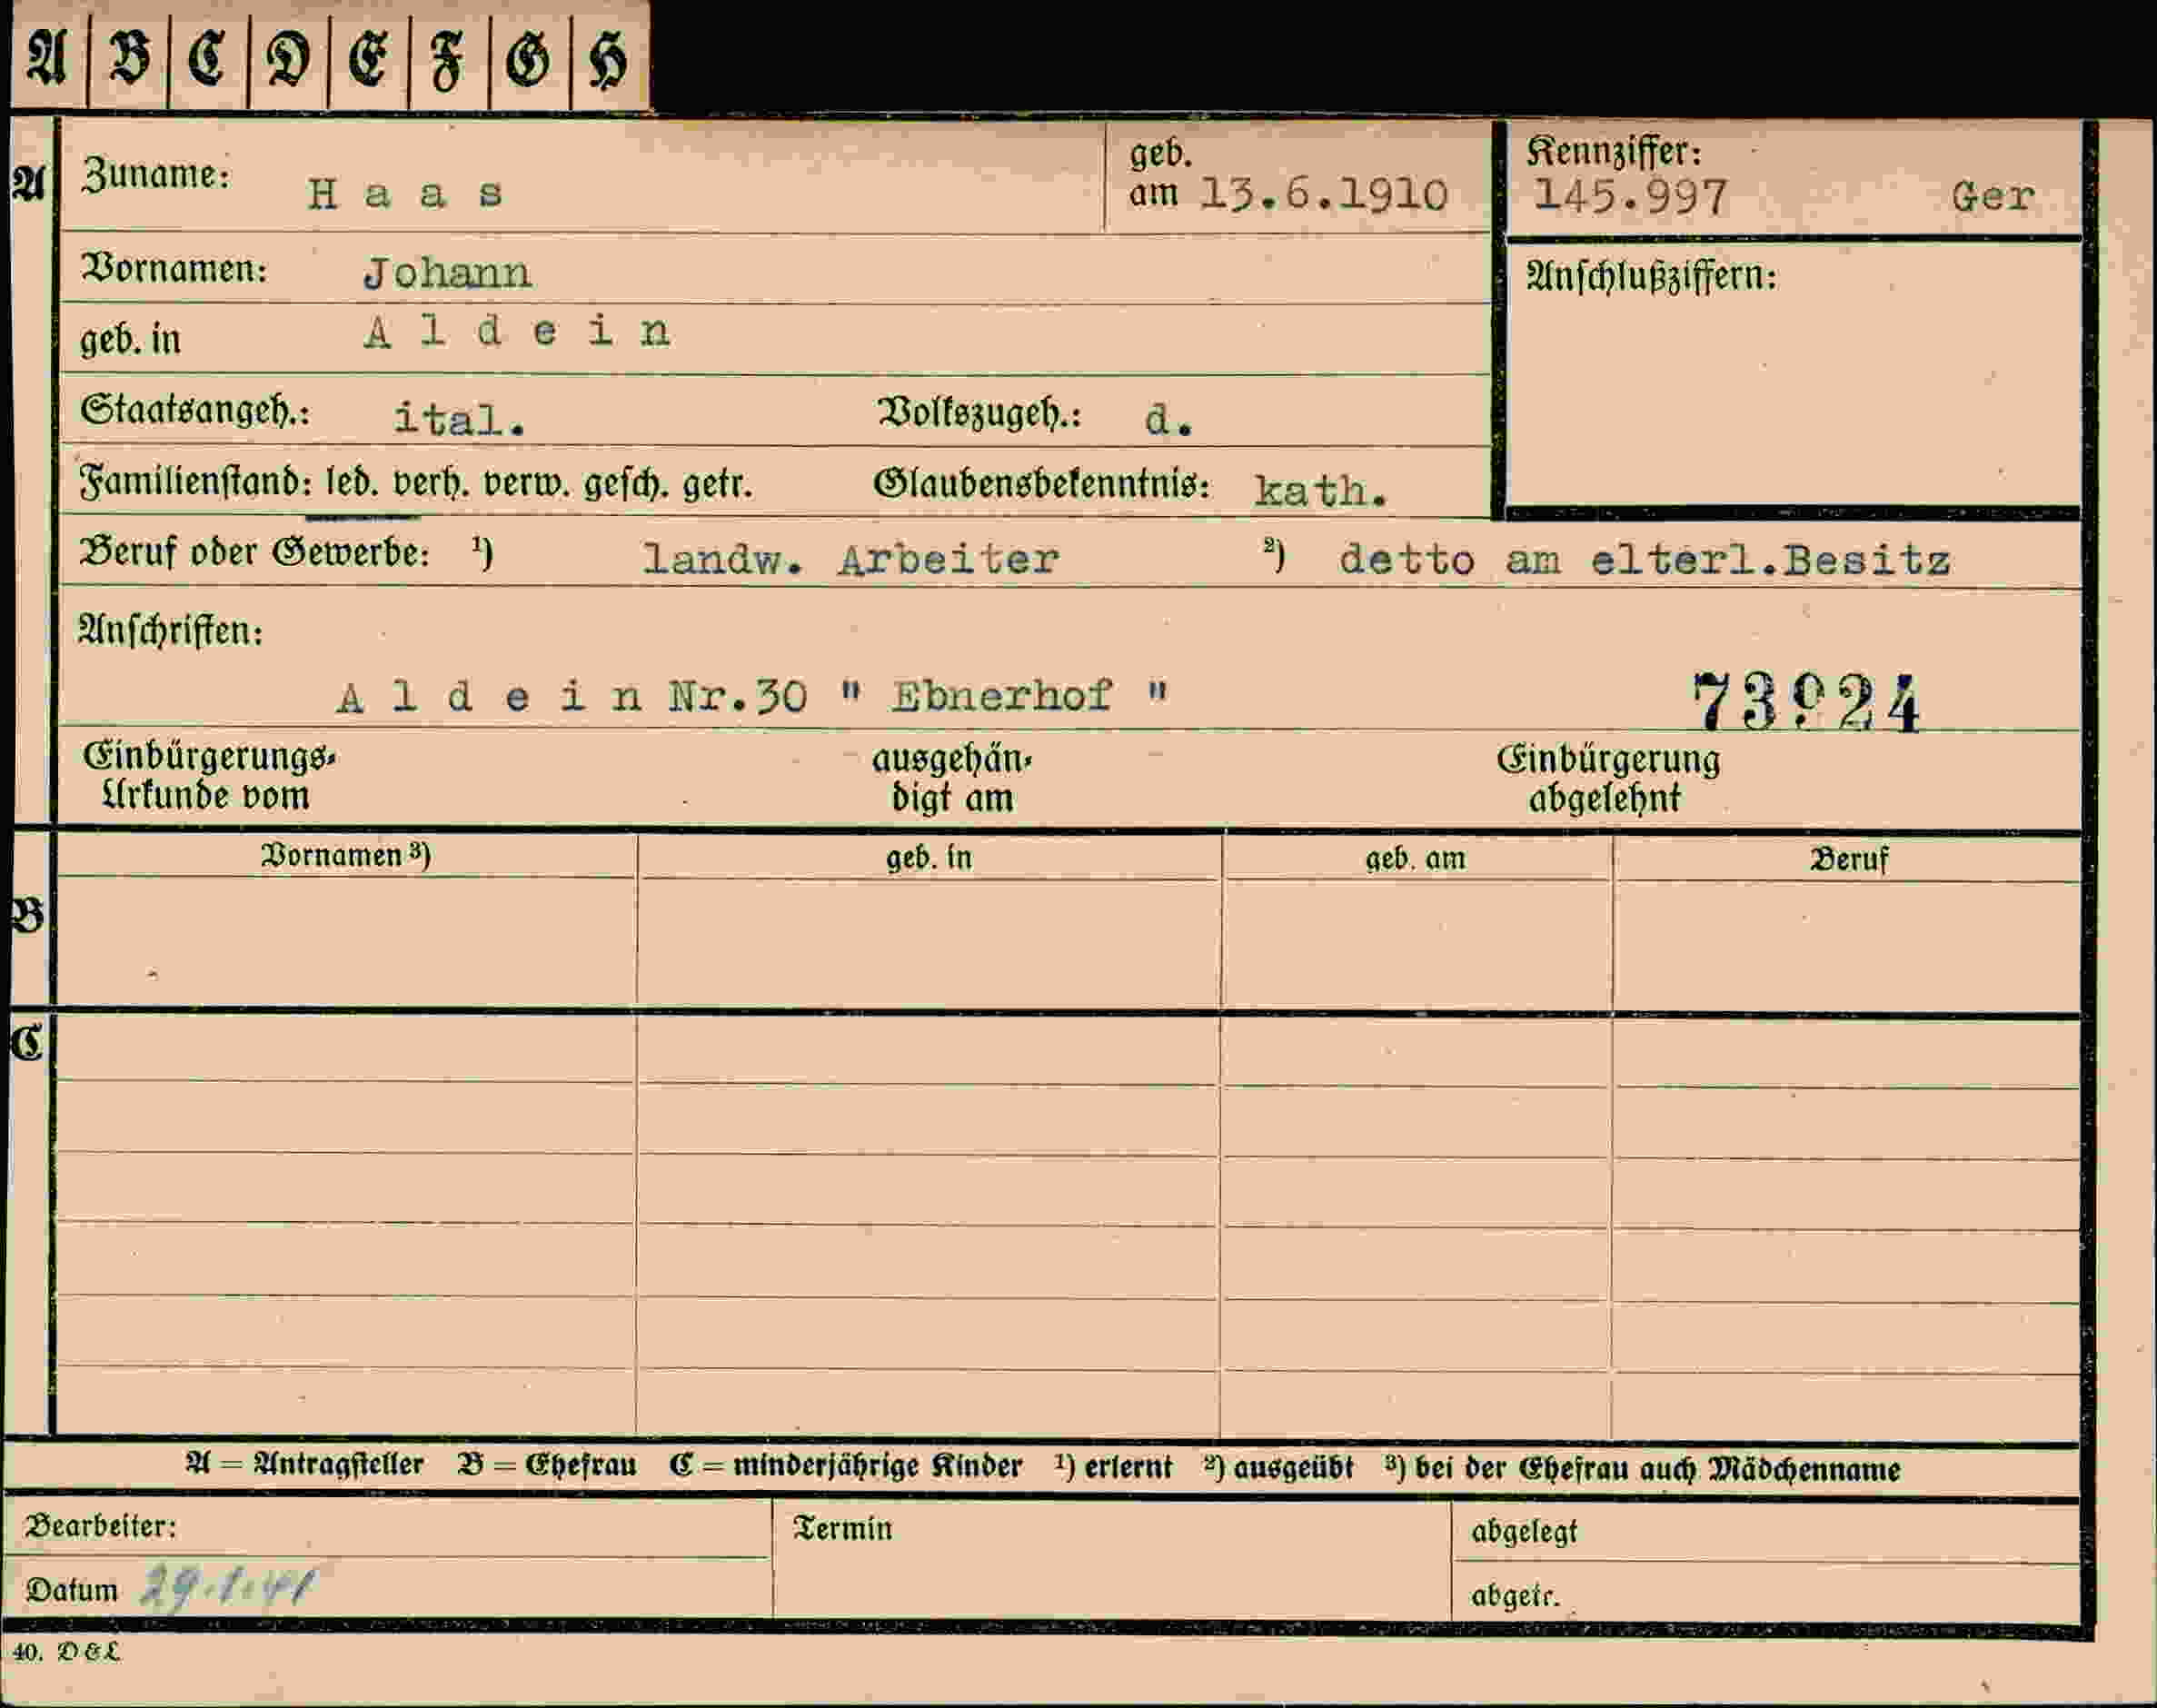 A B C D E F G H
A Zuname: Haas geb. am 13.6.1910 Kennziffer: 145.997 Ger
Vornamen: Johann Anschlußziffern:
geb. in Aldein
Staatsangeh.: ital. Volkszugeh.: d.
Familienstand: led. verh. verw. gesch. getr. Glaubensbekenntnis: kath.
Beruf oder Gewerbe: ¹) landw. Arbeiter ²) detto am elterl.Besitz
Anschriften:
Aldein Nr.30 " Ebnerhof "
Einbürgerungs- ausgehän- Einbürgerung
Urkunde vom digt am abgelehnt
Vornamen ³) geb. in geb. am Beruf
B
C
A = Antragsteller B = Ehefrau C = minderjährige Kinder ¹) erlernt ²) ausgeübt ³) bei der Ehefrau auch Mädchenname
Bearbeiter: Termin abgelegt
Datum 29.1.41 abgetr.
40. D & L